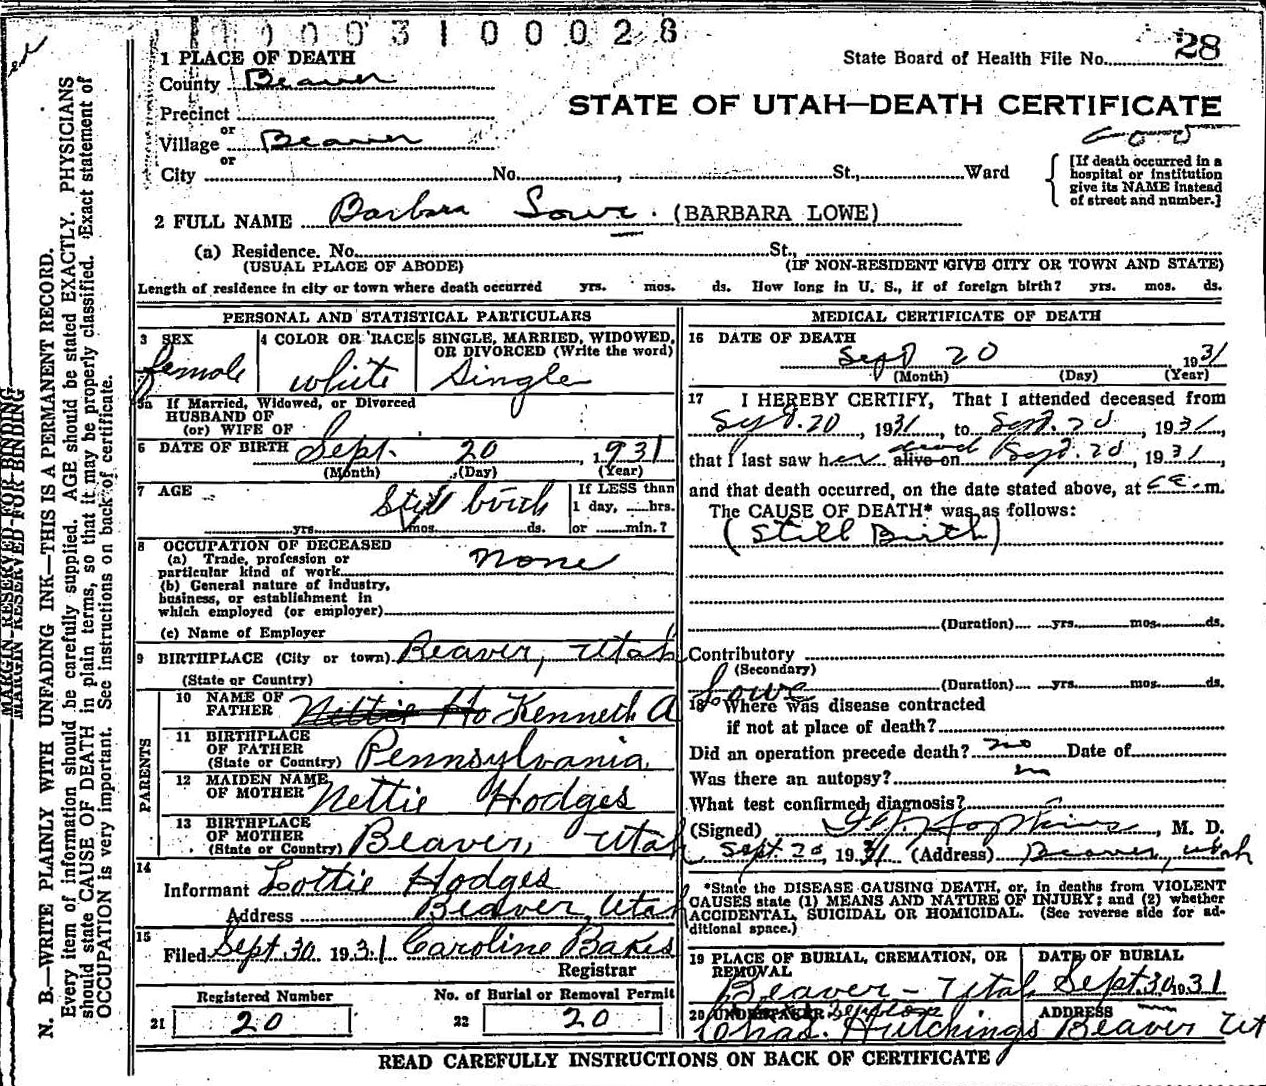 0003100028
1 PLACE OF DEATH
State Board of Health File No. 28
County Beaver
STATE OF UTAH—DEATH CERTIFICATE
Precinct
or
Village Beaver
or
City No. , St., Ward
[If death occurred in a
hospital or institution
give its NAME instead
of street and number.]
2 FULL NAME Barbara Lowe. (BARBARA LOWE)
(a) Residence. No. St.,
(USUAL PLACE OF ABODE) (IF NON-RESIDENT GIVE CITY OR TOWN AND STATE)
Length of residence in city or town where death occurred yrs. mos. ds. How long in U. S., if of foreign birth? yrs. mos. ds.
PERSONAL AND STATISTICAL PARTICULARS
3 SEX
female
4 COLOR OR RACE
white
5 SINGLE, MARRIED, WIDOWED,
OR DIVORCED (Write the word)
Single
5a If Married, Widowed, or Divorced
HUSBAND OF
(or) WIFE OF
6 DATE OF BIRTH Sept. 20, 1931
(Month) (Day) (Year)
7 AGE Still birth
yrs. mos. ds.
If LESS than
1 day, hrs.
or min.?
8 OCCUPATION OF DECEASED
(a) Trade, profession or
particular kind of work none
(b) General nature of industry,
business, or establishment in
which employed (or employer)
(c) Name of Employer
9 BIRTHPLACE (City or town) Beaver, Utah
(State or Country)
PARENTS
10 NAME OF
FATHER Nettie Ho Kenneth A Lowe
11 BIRTHPLACE
OF FATHER
(State or Country) Pennsylvania
12 MAIDEN NAME
OF MOTHER Nettie Hodges
13 BIRTHPLACE
OF MOTHER
(State or Country) Beaver, Utah
14
Informant Lottie Hodges
Address Beaver, Utah
15
Filed Sept. 30 1931 Caroline Bakes
Registrar
Registered Number
21 20
No. of Burial or Removal Permit
22 20
MEDICAL CERTIFICATE OF DEATH
16 DATE OF DEATH
Sept 20 1931
(Month) (Day) (Year)
17 I HEREBY CERTIFY, That I attended deceased from
Sept. 20, 1931, to Sept. 20, 1931,
that I last saw her alive on dead Sept. 20, 1931,
and that death occurred, on the date stated above, at m.
The CAUSE OF DEATH* was as follows:
(Still Birth)
(Duration) yrs. mos. ds.
Contributory
(Secondary)
(Duration) yrs. mos. ds.
18 Where was disease contracted
if not at place of death?
Did an operation precede death? no Date of
Was there an autopsy? no
What test confirmed diagnosis?
(Signed) Hopkins, M. D.
Sept. 20, 1931 (Address) Beaver, Utah
*State the DISEASE CAUSING DEATH, or, in deaths from VIOLENT
CAUSES state (1) MEANS AND NATURE OF INJURY; and (2) whether
ACCIDENTAL, SUICIDAL OR HOMICIDAL. (See reverse side for ad-
ditional space.)
19 PLACE OF BURIAL, CREMATION, OR
REMOVAL
Beaver - Utah
DATE OF BURIAL
Sept. 30 1931
20 UNDERTAKER
Chas. Hutchings
ADDRESS
Beaver Ut
READ CAREFULLY INSTRUCTIONS ON BACK OF CERTIFICATE
MARGIN RESERVED FOR BINDING
MARGIN RESERVED FOR BINDING
N. B.—WRITE PLAINLY WITH UNFADING INK—THIS IS A PERMANENT RECORD.
Every item of information should be carefully supplied. AGE should be stated EXACTLY. PHYSICIANS
should state CAUSE OF DEATH in plain terms, so that it may be properly classified. Exact statement of
OCCUPATION is very important. See instructions on back of certificate.